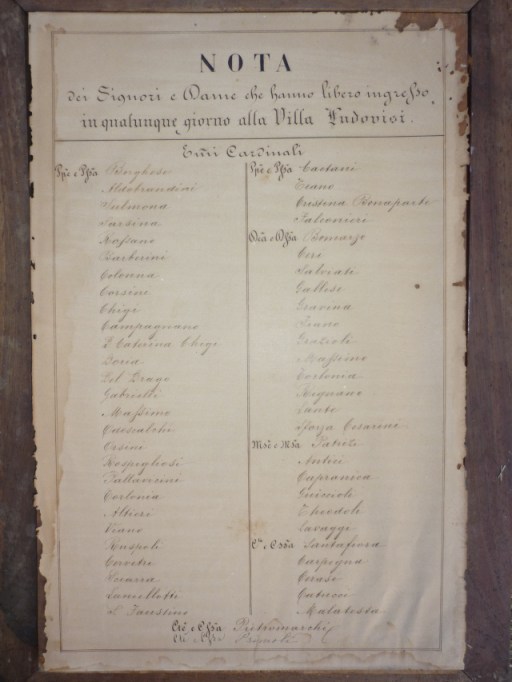 NOTA
dei Signori e Dame che hanno libero ingresso,
in qualunque giorno alla Villa Ludovisi.
Emi Cardinali
Ppe e Ppssa Borghese
Aldobrandini
Sulmona
Sarsina
Rossano
Barberini
Colonna
Corsini
Chigi
Campagnano
D. Caterina Chigi
Doria
Del Drago
Gabrielli
Massimo
Odescalchi
Orsini
Rospigliosi
Pallavicini
Torlonia
Altieri
Viano
Ruspoli
Cerveteri
Lancellotti
S. Faustino
Ppe e Ppssa Caetani
Teano
Cristina Bonaparte
Falconieri
Dca e Dssa Bomarzo
Ceri
Salviati
Gallese
Gravina
Fiano
Grazioli
Massimo
Torlonia
Rignano
Sforza Cesarini
Mse e Msa Patrizi
Antici
Capranica
Guiccioli
Theodoli
Cavaggi
Cte e Cssa Santafiora
Carpegna
Cerasi
Malatesta
Cte e Cssa Pietromarchi
Cte e Cssa Primoli